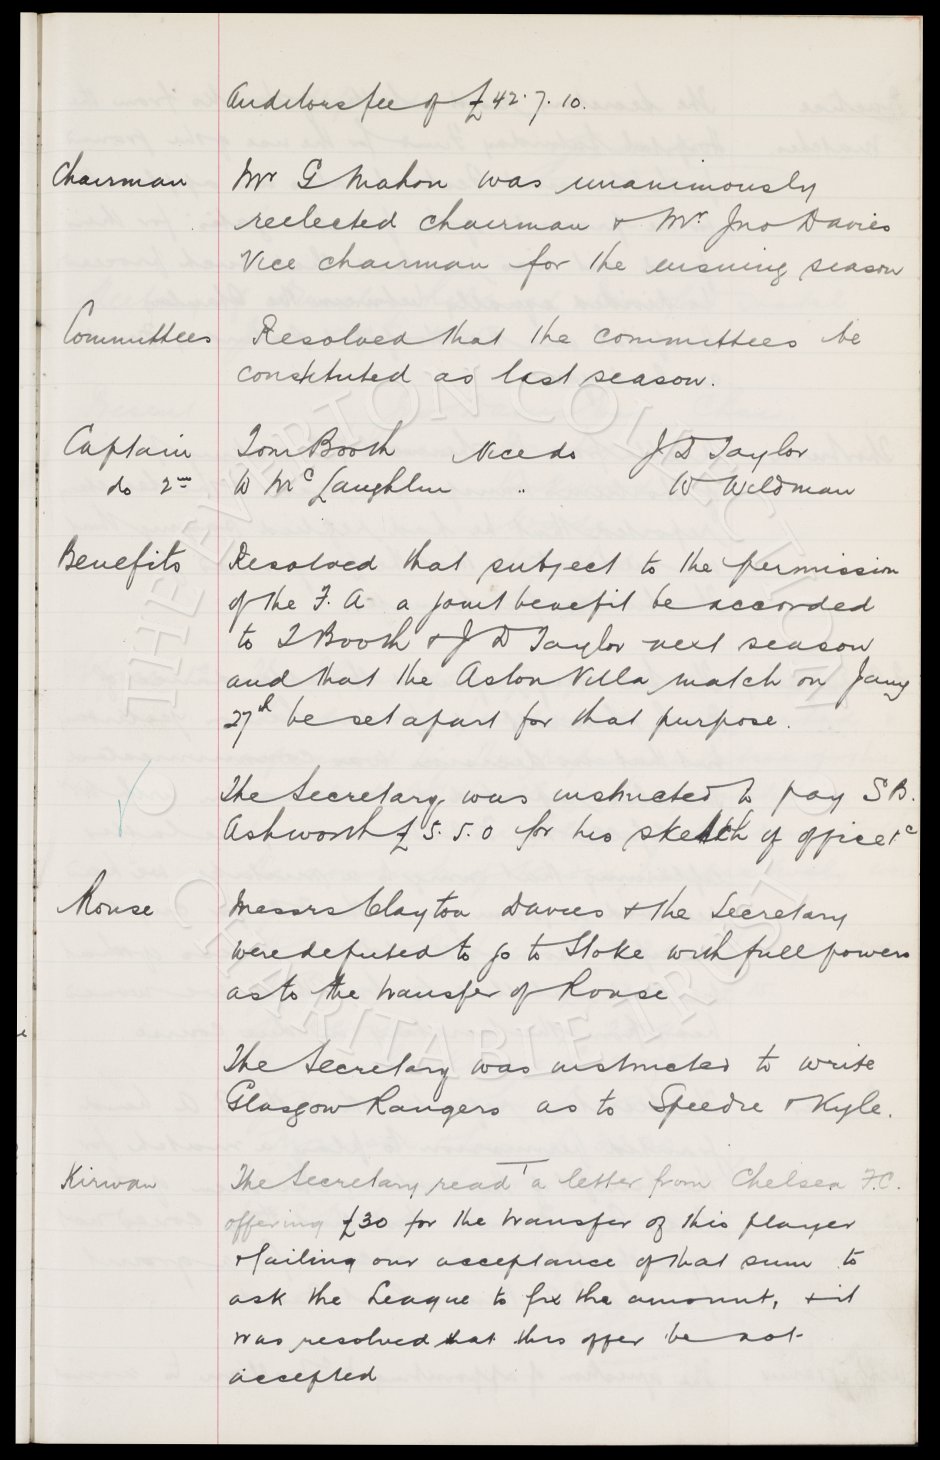 Auditors fee of £42.7.10.
Chairman Mr G Mahon was unanimously
reelected chairman & Mr Jno Davies
Vice chairman for the ensuing season
Committees Resolved that the committees be
constituted as last season.
Captain Tom Booth Vice do J D Taylor
do 2nd W McLaughlin " W Wildman
Benefits Resolved that subject to the permission
of the F. A. a joint benefit be accorded
to T Booth & J D Taylor next season
and that the Aston Villa match on Jany
27th be set apart for that purpose.
The Secretary was instructed to pay S B.
Ashworth £5.5.0 for his sketch of office &c
Rouse Messrs Clayton Davies & the Secretary
were deputed to go to Stoke with full powers
as to the transfer of Rouse
The Secretary was instructed to write
Glasgow Rangers as to Speedie & Kyle.
Kirwan The Secretary read a letter from Chelsea F.C.
offering £30 for the transfer of this player
& failing our acceptance of that sum to
ask the League to fix the amount, & it
was resolved that this offer be not
accepted
THE EVERTON COLLECTION
CHARITABLE TRUST